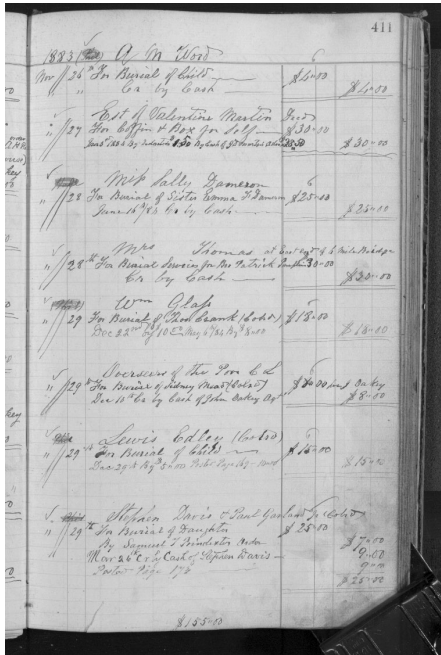 411
1883 A M Wood
Nov 26th For Burial of Child $4-00
" " Cr by Cash $4-00
Est of Valentine Martin Decd
" 27 For Coffin & Box for Self $30-00
$30-00
Miss Sally Dameron
" 28 For Burial of Sister Emma F Dameron $25-00
June 16th /84 Cr by Cash $25-00
Mrs Thomas at East end of
" 28th For Burial Services for Mr Patrick 30-00
Cr by Cash $30-00
Wm Glass
" 29 For Burial of Thos Crank (Cold) $18-00
Dec 22nd by 10 8-00 $18-00
Overseers of the Poor C L
" 29th For Burial of Sidney Mead (Cold) Oakey
Dec 10th Cr by Cash of John Oakey Agt $8-00
Lewis Edley (Cold)
" 29th For Burial of Child $15-00
Dec 29th $15-00
Stephen Davis & Paul Garland (Cold)
" 29th For Burial of Daughter $25-00
By Samuel T order $7-00
Mar 26th Cr by Cash of Stephen Davis 9-00
Page 178 9-00
$25-00
$155-00